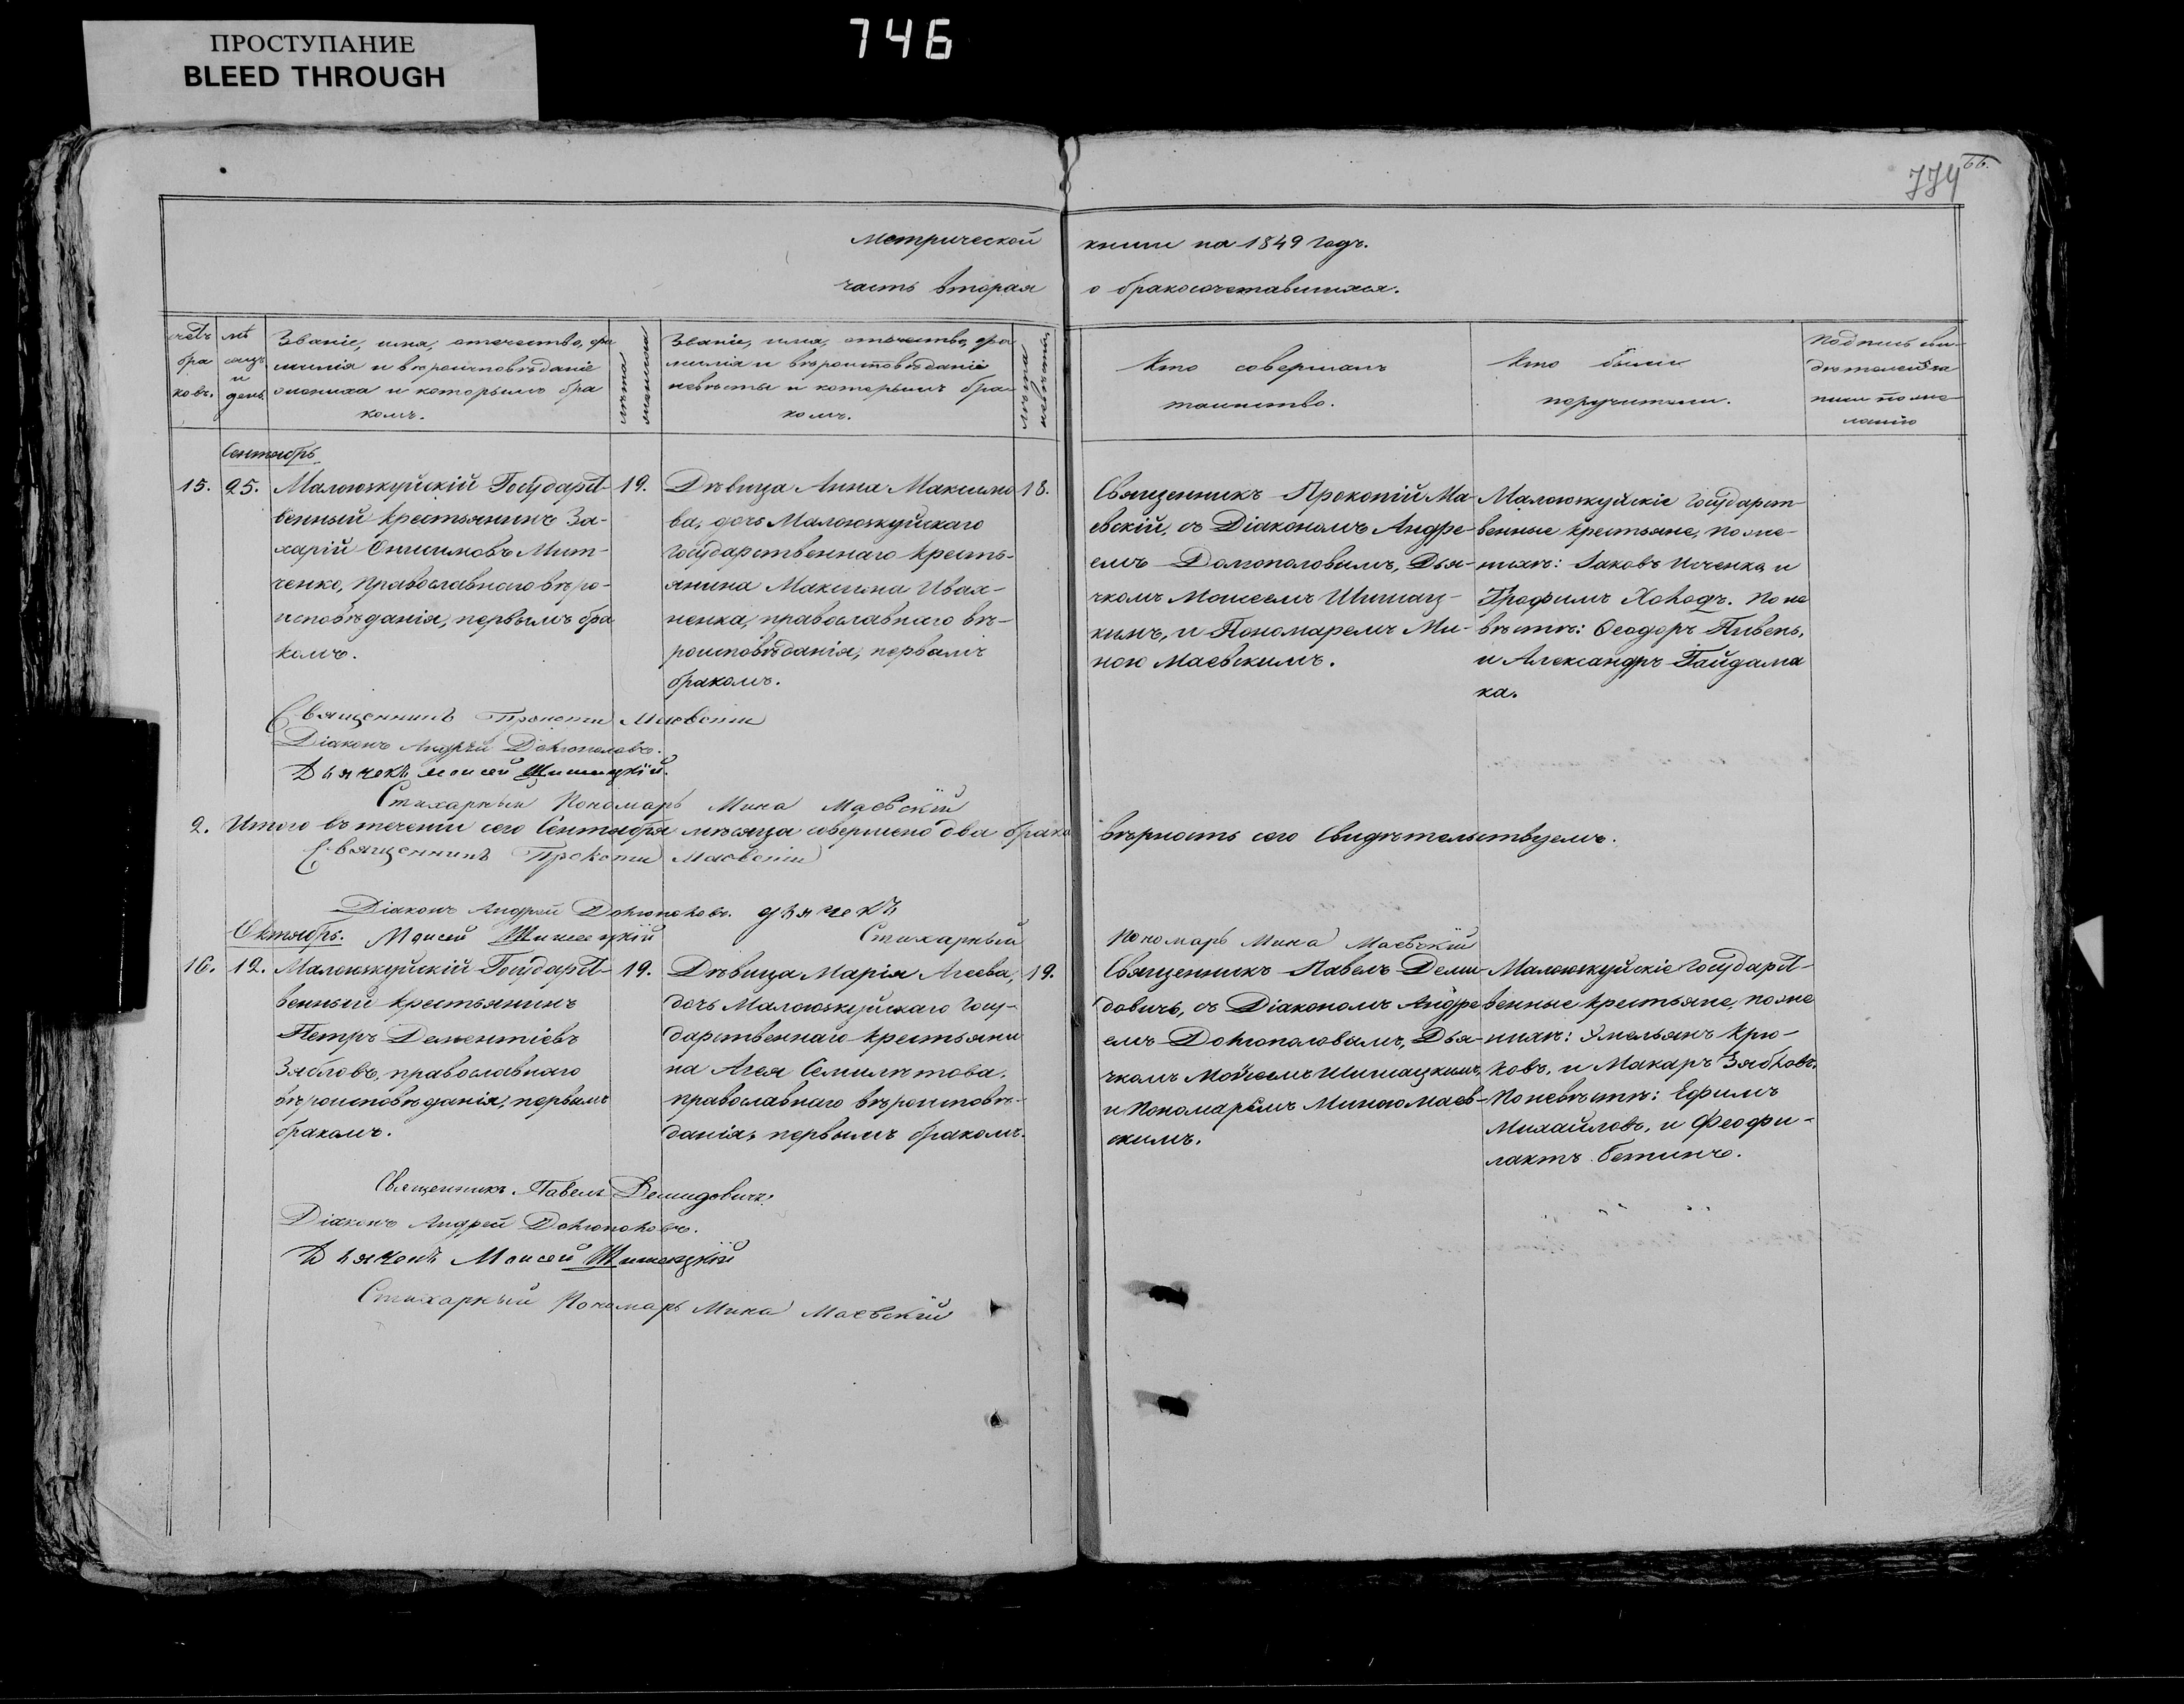 ПРОСТУПАНИЕ
BLEED THROUGH
746
774
66.
метрической книги на 1849 годъ.
часть вторая о бракосочетавшихся.
счетъ
бра
ковъ.
мѣ
сяцъ
и
день
Званіе, имя, отечество, фа
милія и вѣроисповѣданіе
жениха и которымъ бра
комъ.
лѣта
жениха
Званіе, имя, отечество, фа
милія и вѣроисповѣданіе
невѣсты и которымъ бра-
комъ.
лѣта
невѣсты
Кто совершалъ
таинство.
Кто были
поручители.
Подпись сви-
дѣтелей за
писи по же-
ланію
Сентябрь
15. 25.
Малоюжкуйскій Государст-
венный крестьянинъ За-
харій Онисимовъ Мит-
ченко, православнаго вѣро-
исповѣданія, первымъ бра
комъ.
19.
Дѣвица Анна Максимо
ва, дочь Малоюжкуйскаго
государственнаго кресть-
янина Максима Иван-
ненка, православнаго вѣ-
роисповѣданія, первымъ
бракомъ.
18.
Священникъ Прокопій Ма-
евскій, съ Діакономъ Андре-
емъ Долгополовымъ, Дья-
чкомъ Моисеемъ Шишац-
кимъ, и Пономаремъ Ми-
ною Маевскимъ.
Малоюжкуйскіе государст-
венные крестьяне, по же-
нихѣ: Іаковъ Ищенко и
Трофимъ Холодъ. По не
вѣстѣ: Ѳеодоръ Пивень,
и Александръ Гайдама
ка.
Священникъ Прокопій Маевскій
Діаконъ Андрей Долгополовъ.
Дьячекъ Моисей Шишацкій.
Стихарный Пономарь Мина Маевскій
2. Итого въ теченіи сего Сентября мѣсяца совершено два брака вѣрность сего Свидѣтельствуемъ.
Священникъ Прокопій Маевскій
Діаконъ Андрей Долгополовъ. Дьячекъ
Октябрь. Моисей Шишацкій Стихарный Пономарь Мина Маевскій
16. 12.
Малоюжкуйскій Государст-
венный крестьянинъ
Петръ Дементіевъ
Зябловъ, православнаго
вѣроисповѣданія, первымъ
бракомъ.
19.
Дѣвица Марія Агеева,
дочь Малоюжкуйскаго госу-
дарственнаго крестьяни
на Агея Семилѣтова,
православнаго вѣроисповѣ-
данія, первымъ бракомъ.
19.
Священникъ Павелъ Деми-
довичъ, съ Діакономъ Андре
емъ Долгополовымъ, Дья-
чкомъ Моисеемъ Шишацкимъ,
и Пономаремъ Миною Маев-
скимъ.
Малоюжкуйскіе государст-
венные крестьяне, по же
нихѣ: Емельянъ Крю-
ковъ, и Макаръ Зябловъ.
По невѣстѣ: Ефимъ
Михайловъ, и Феофи-
лактъ Бетинъ.
Священникъ Павелъ Демидовичъ.
Діаконъ Андрей Долгополовъ.
Дьячекъ Моисей Шишацкій
Стихарный Пономарь Мина Маевскій